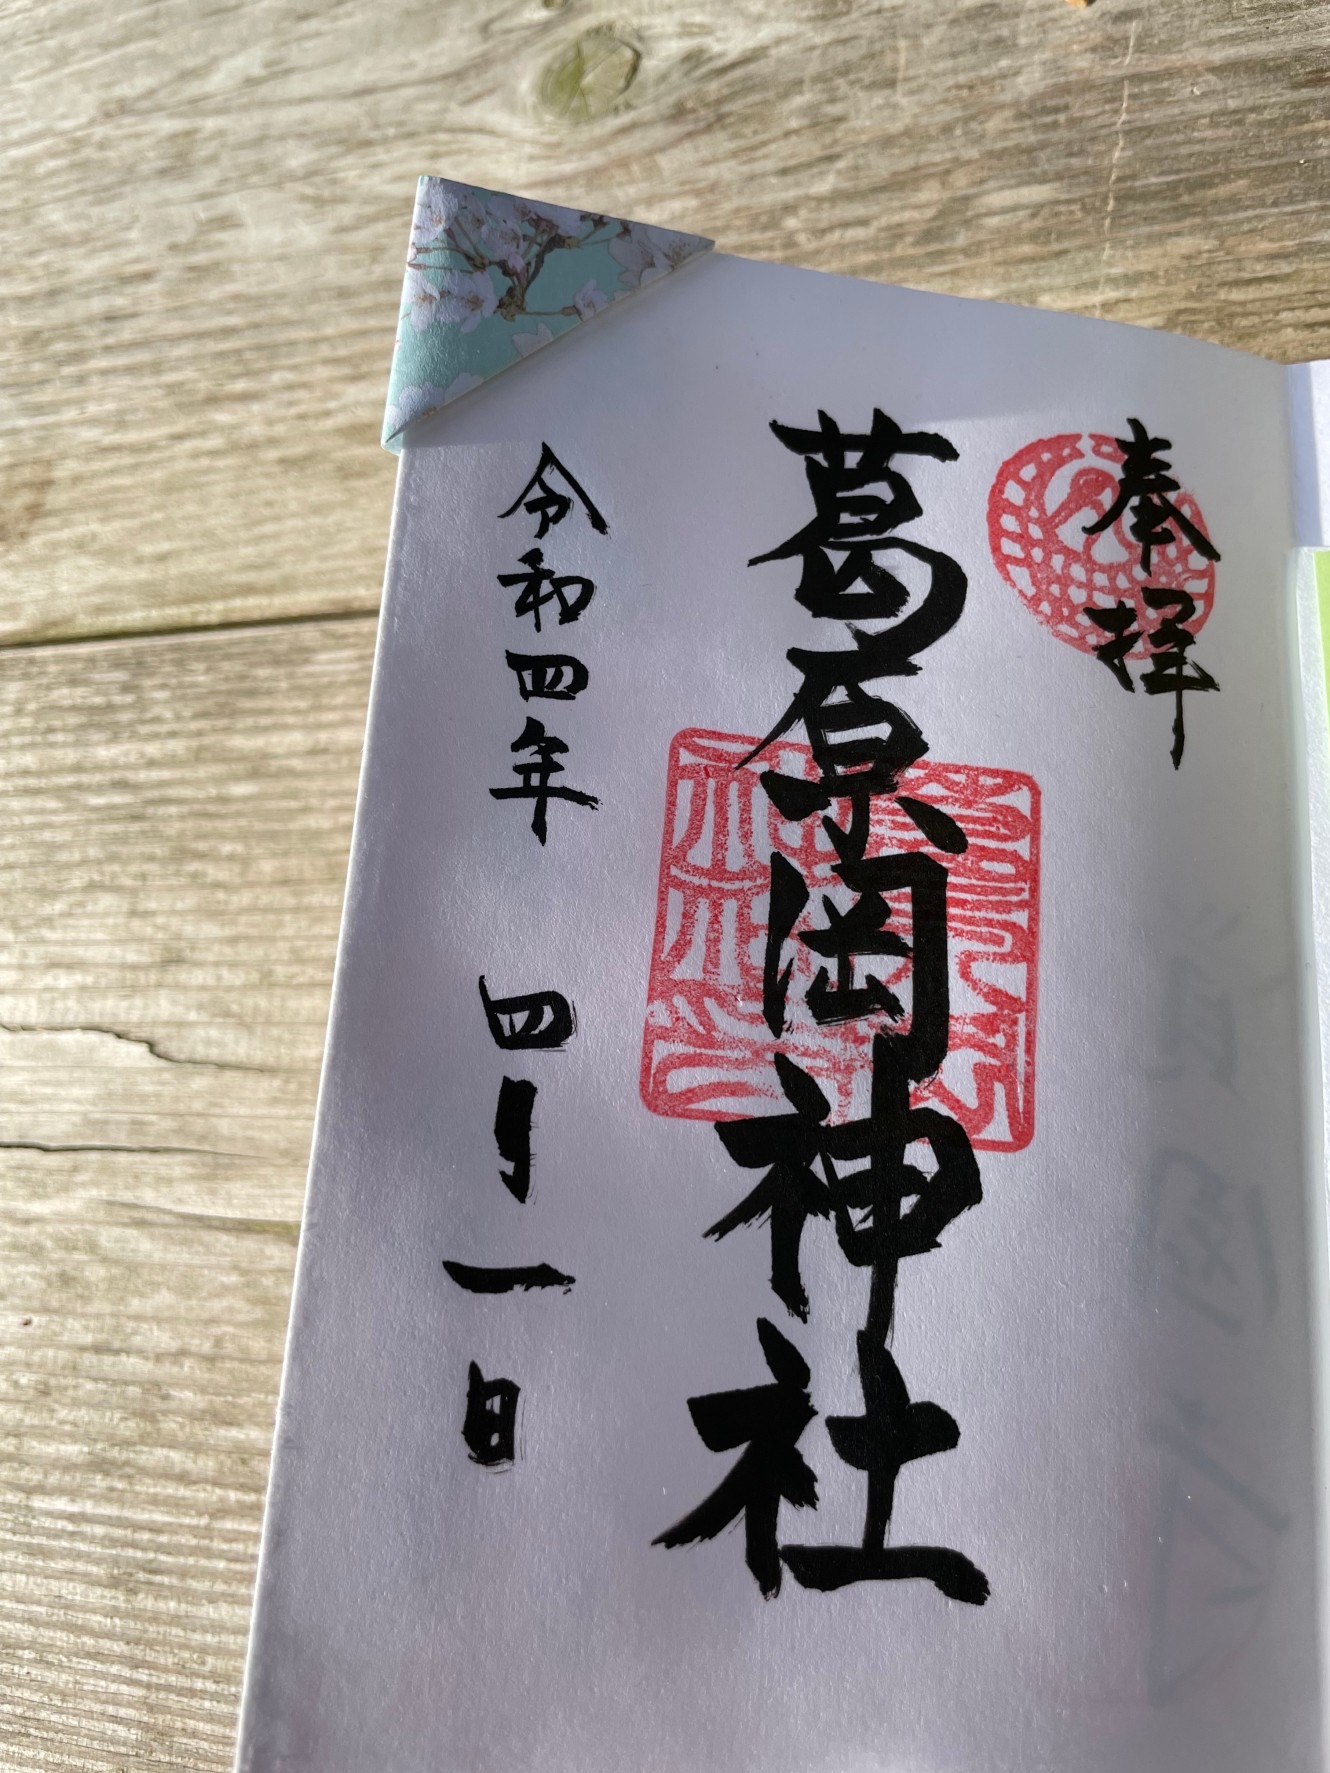 奉拝
葛原岡神社
令和四年 四月一日